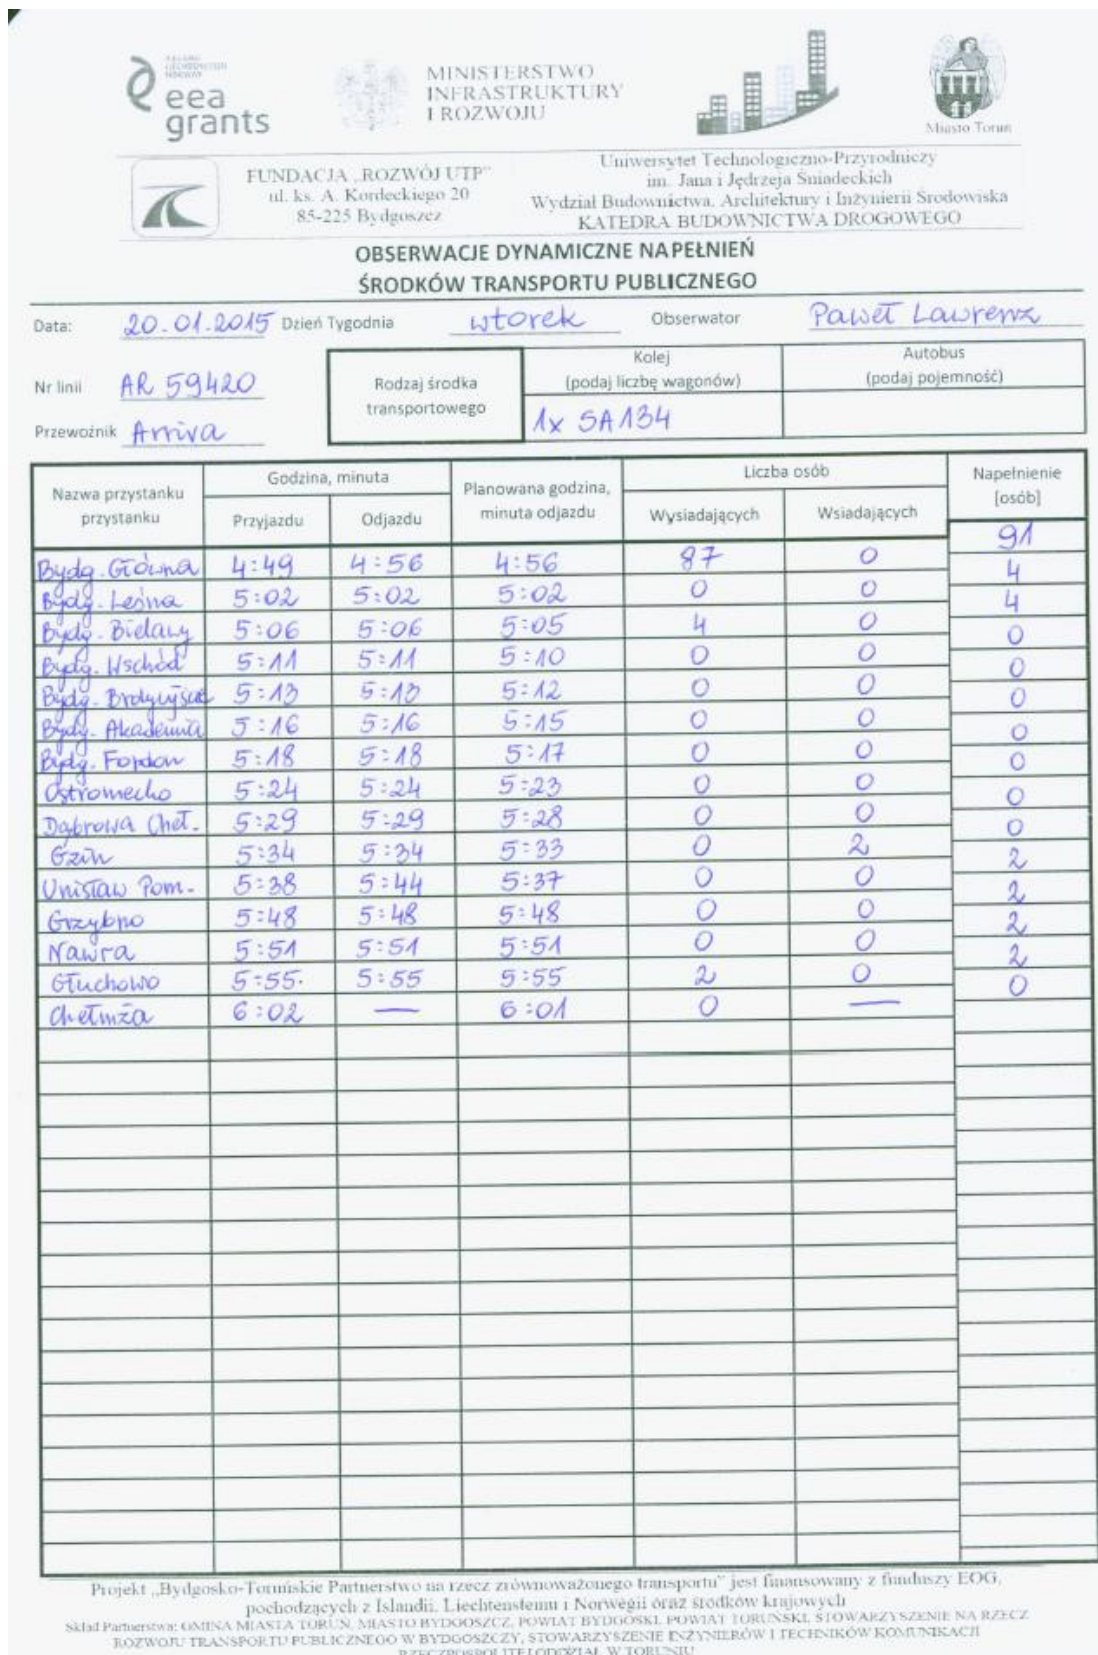 eea
grants
MINISTERSTWO
INFRASTRUKTURY
I ROZWOJU
Miasto Toruń
FUNDACJA „ROZWÓJ UTP”
ul. ks. A. Kordeckiego 20
85-225 Bydgoszcz
Uniwersytet Technologiczno-Przyrodniczy
im. Jana i Jędrzeja Śniadeckich
Wydział Budownictwa, Architektury i Inżynierii Środowiska
KATEDRA BUDOWNICTWA DROGOWEGO
OBSERWACJE DYNAMICZNE NAPEŁNIEŃ
ŚRODKÓW TRANSPORTU PUBLICZNEGO
Data: 20.01.2015 Dzień Tygodnia wtorek Obserwator Paweł Lawrenz
Nr linii AR 59420
Przewoźnik Arriva
Rodzaj środka transportowego
Kolej (podaj liczbę wagonów)
Autobus (podaj pojemność)
1x SA134
Nazwa przystanku przystanku
Godzina, minuta
Przyjazdu Odjazdu
Planowana godzina, minuta odjazdu
Liczba osób
Wysiadających Wsiadających
Napełnienie [osób]
91
Bydg. Główna 4:49 4:56 4:56 87 0 4
Bydg. Leśna 5:02 5:02 5:02 0 0 4
Bydg. Bielawy 5:06 5:06 5:05 4 0 0
Bydg. Wschód 5:11 5:11 5:10 0 0 0
Bydg. 5:13 5:13 5:12 0 0 0
Bydg. Akademia 5:16 5:16 5:15 0 0 0
Bydg. Fordon 5:18 5:18 5:17 0 0 0
Ostromecko 5:24 5:24 5:23 0 0 0
Dąbrowa Cheł. 5:29 5:29 5:28 0 0 0
Gzin 5:34 5:34 5:33 0 2 2
Unisław Pom. 5:38 5:44 5:37 0 0 2
Grzybno 5:48 5:48 5:48 0 0 2
Nawra 5:51 5:51 5:51 0 0 2
Głuchowo 5:55. 5:55 5:55 2 0 0
Chełmża 6:02 — 6:01 0 —
Projekt „Bydgosko-Toruńskie Partnerstwo na rzecz zrównoważonego transportu” jest finansowany z funduszy EOG,
pochodzących z Islandii, Liechtensteinu i Norwegii oraz środków krajowych
Skład Partnerstwa: GMINA MIASTA TORUŃ, MIASTO BYDGOSZCZ, POWIAT BYDGOSKI, POWIAT TORUŃSKI, STOWARZYSZENIE NA RZECZ
ROZWOJU TRANSPORTU PUBLICZNEGO W BYDGOSZCZY, STOWARZYSZENIE INŻYNIERÓW I TECHNIKÓW KOMUNIKACJI
RZECZPOSPOLITEJ ODDZIAŁ W TORUNIU